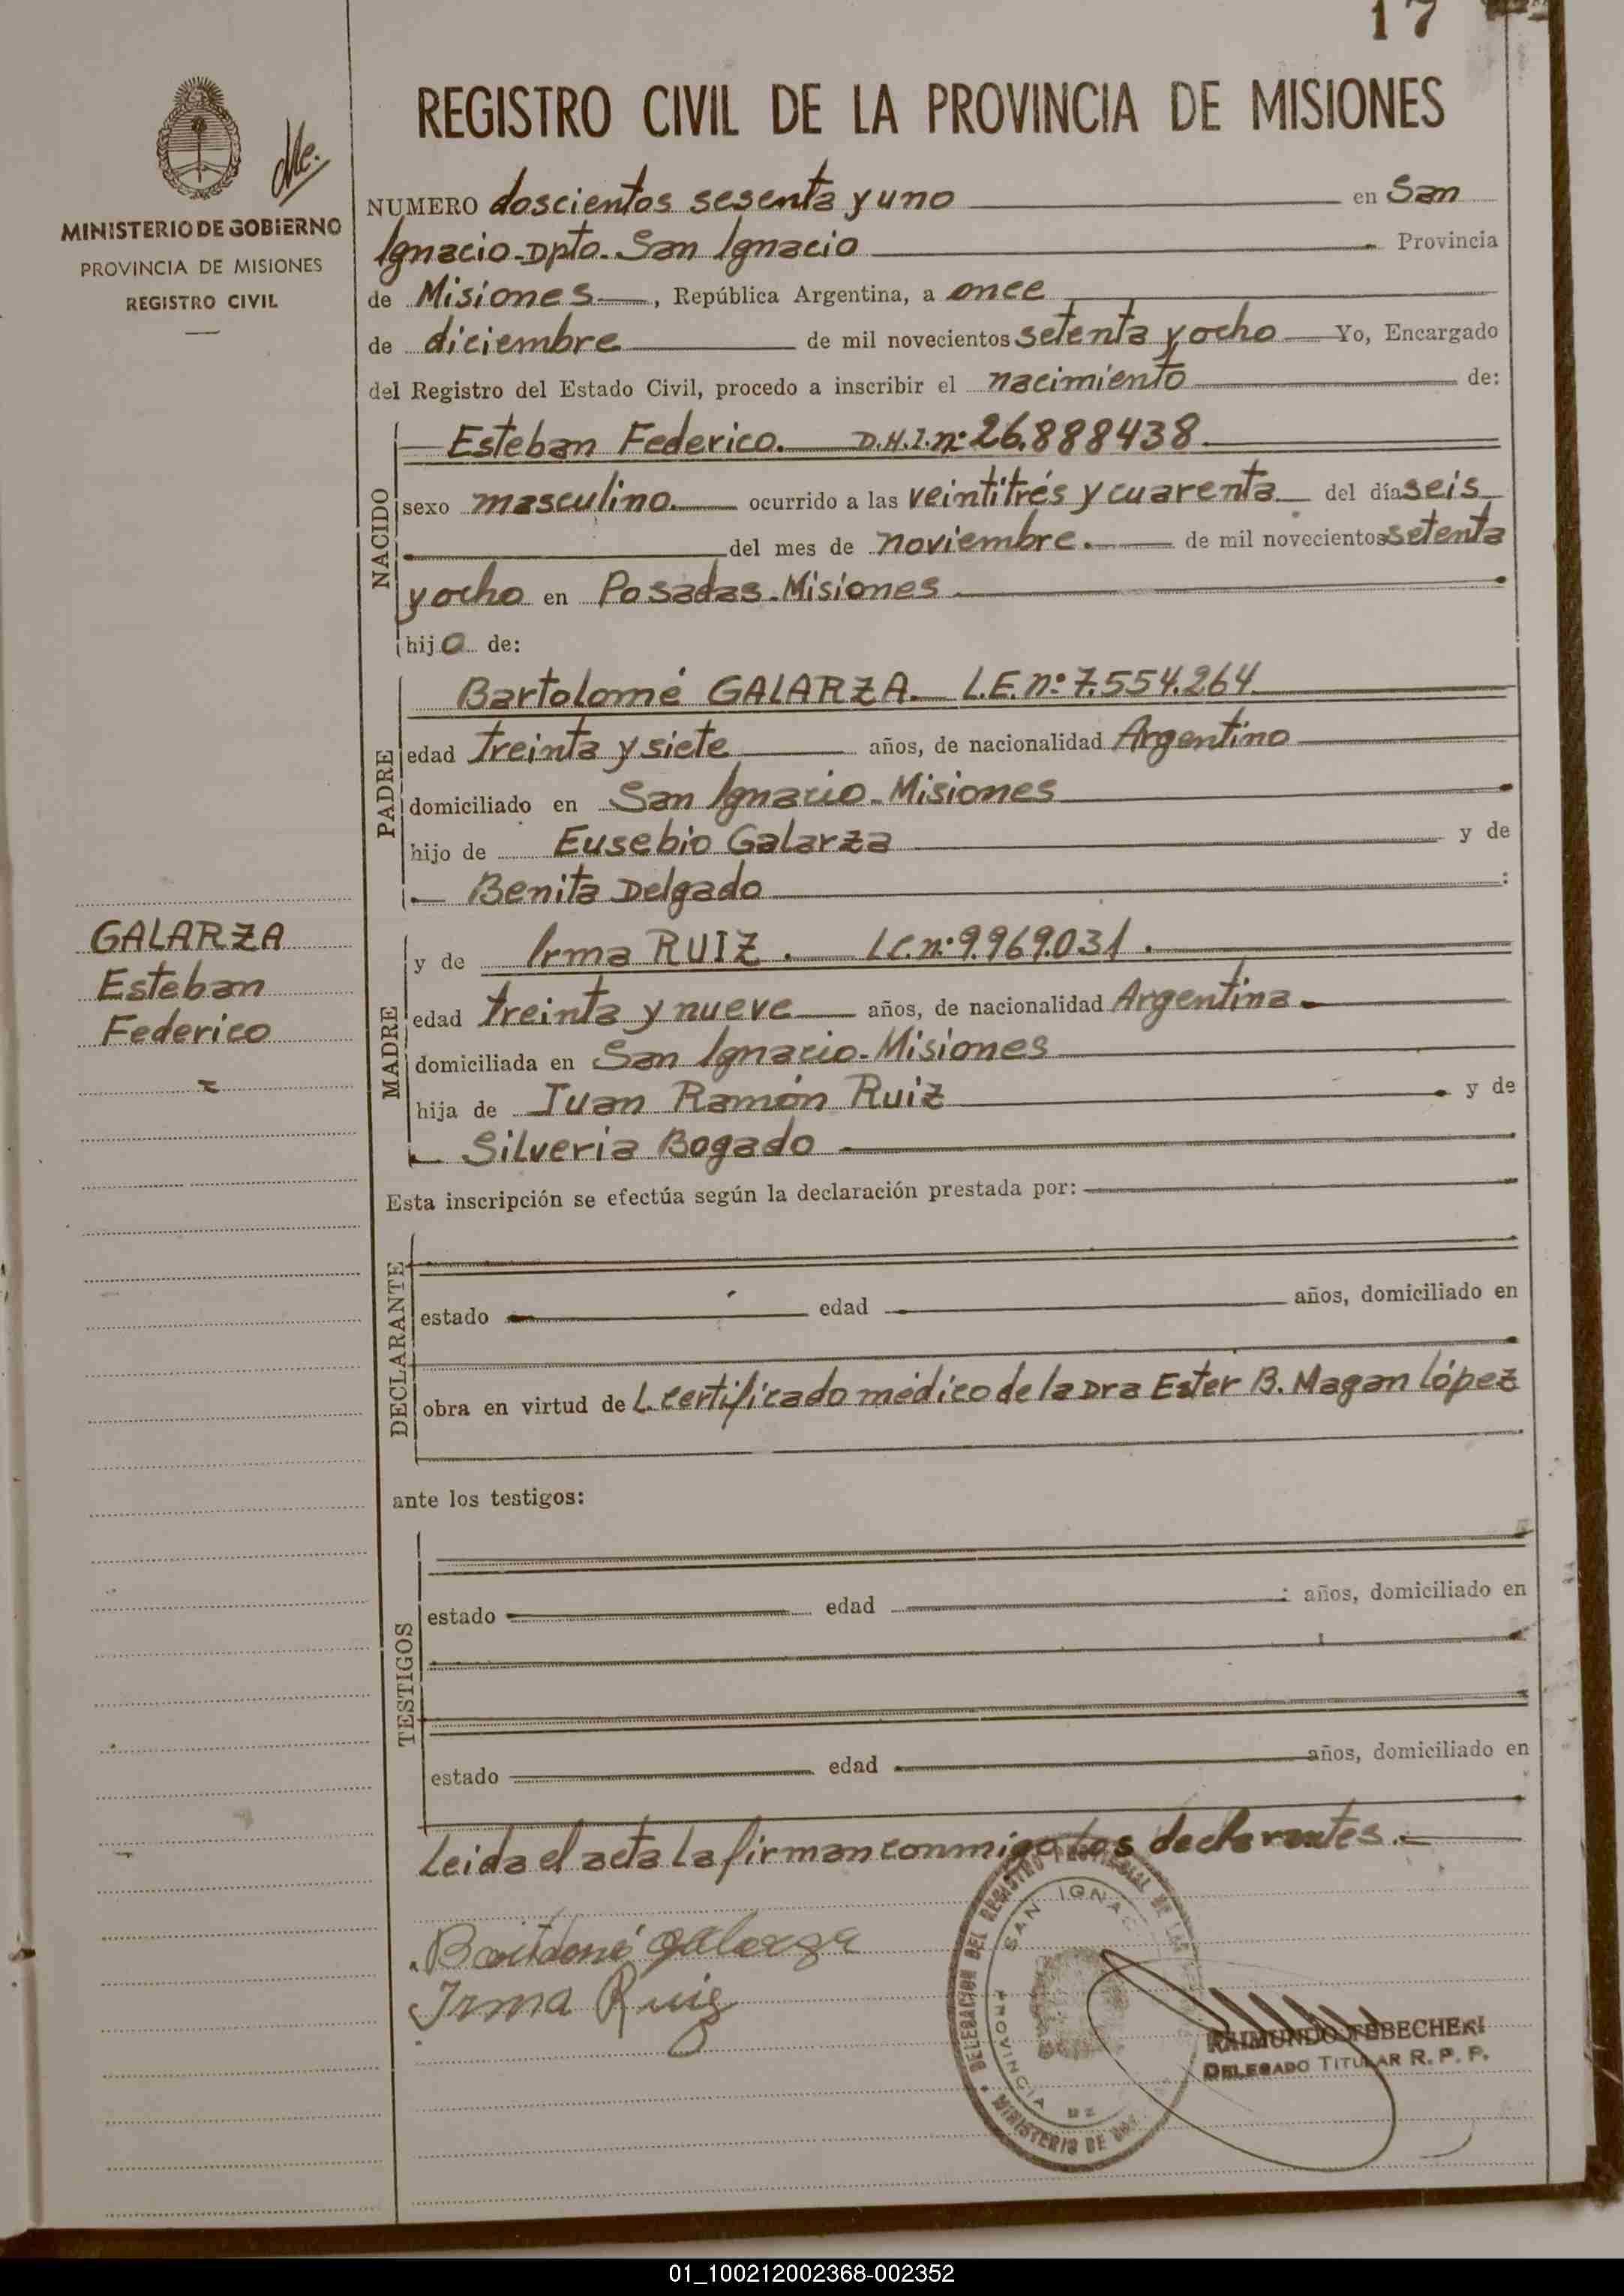 17
REGISTRO CIVIL DE LA PROVINCIA DE MISIONES
MINISTERIO DE GOBIERNO
PROVINCIA DE MISIONES
REGISTRO CIVIL
NUMERO doscientos sesenta y uno en San
Ignacio-Dpto. San Ignacio Provincia
de Misiones, República Argentina, a once
de diciembre de mil novecientos setenta y ocho Yo, Encargado
del Registro del Estado Civil, procedo a inscribir el nacimiento de:
NACIDO
Esteban Federico. D.N.I. nº 26.888438.
sexo masculino. ocurrido a las veintitrés y cuarenta del día seis
del mes de noviembre. de mil novecientos setenta
y ocho en Posadas-Misiones
hijo de:
PADRE
Bartolomé GALARZA. L.E. nº 7.554.264
edad treinta y siete años, de nacionalidad Argentino
domiciliado en San Ignacio-Misiones
hijo de Eusebio Galarza y de
Benita Delgado
GALARZA
Esteban
Federico
MADRE
y de Irma RUIZ. L.C. nº 9.969.031.
edad treinta y nueve años, de nacionalidad Argentina
domiciliada en San Ignacio-Misiones
hija de Juan Ramón Ruiz y de
Silveria Bogado
Esta inscripción se efectúa según la declaración prestada por:
DECLARANTE
estado edad años, domiciliado en
obra en virtud de L certificado médico de la Dra Ester B. Magan López
ante los testigos:
TESTIGOS
estado edad años, domiciliado en
estado edad años, domiciliado en
Leida el acta la firman conmigo los declarantes.
Bartolomé Galarza
Irma Ruiz
DELEGACION DEL REGISTRO PROVINCIAL DE LAS
SAN IGNAC
PROVINCIA DE
MINISTERIO DE
RAIMUNDO TEBECHERI
DELEGADO TITULAR R. P. P.
01_100212002368-002352